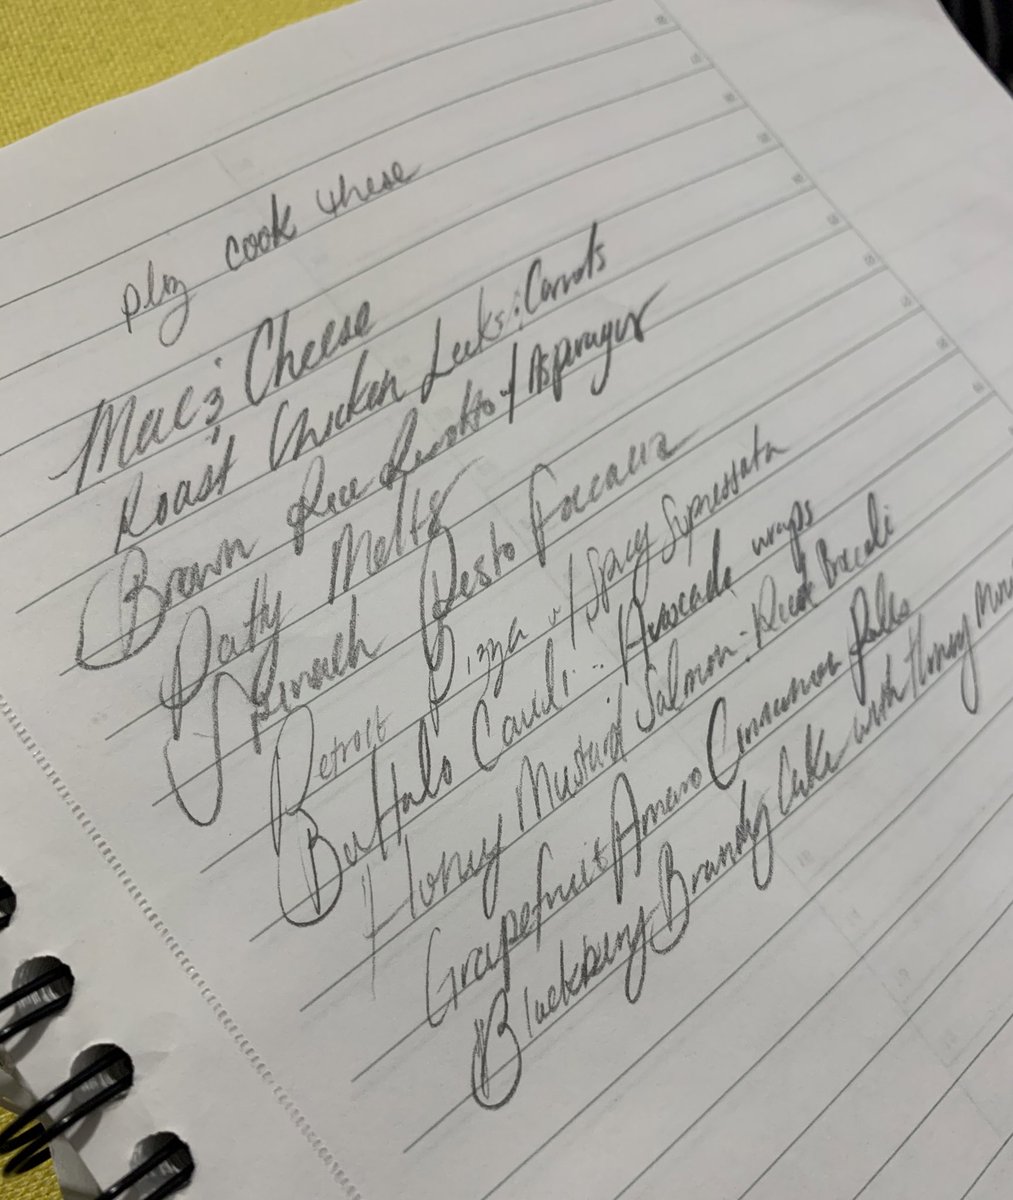 plz cook these
Mac & Cheese
Roast Chicken Leeks & Carrots
Brown Rice Risotto w/ Asparagus
Patty Melts
Spinach Pesto Foccacia
Detroit Pizza w/ Spicy Supressata
Buffalo Cauli & Avocado wraps
Honey Mustard Salmon & Broccoli
Grapefruit Amaro Cinnamon Rolls
Blackberry Brandy Cake with Honey